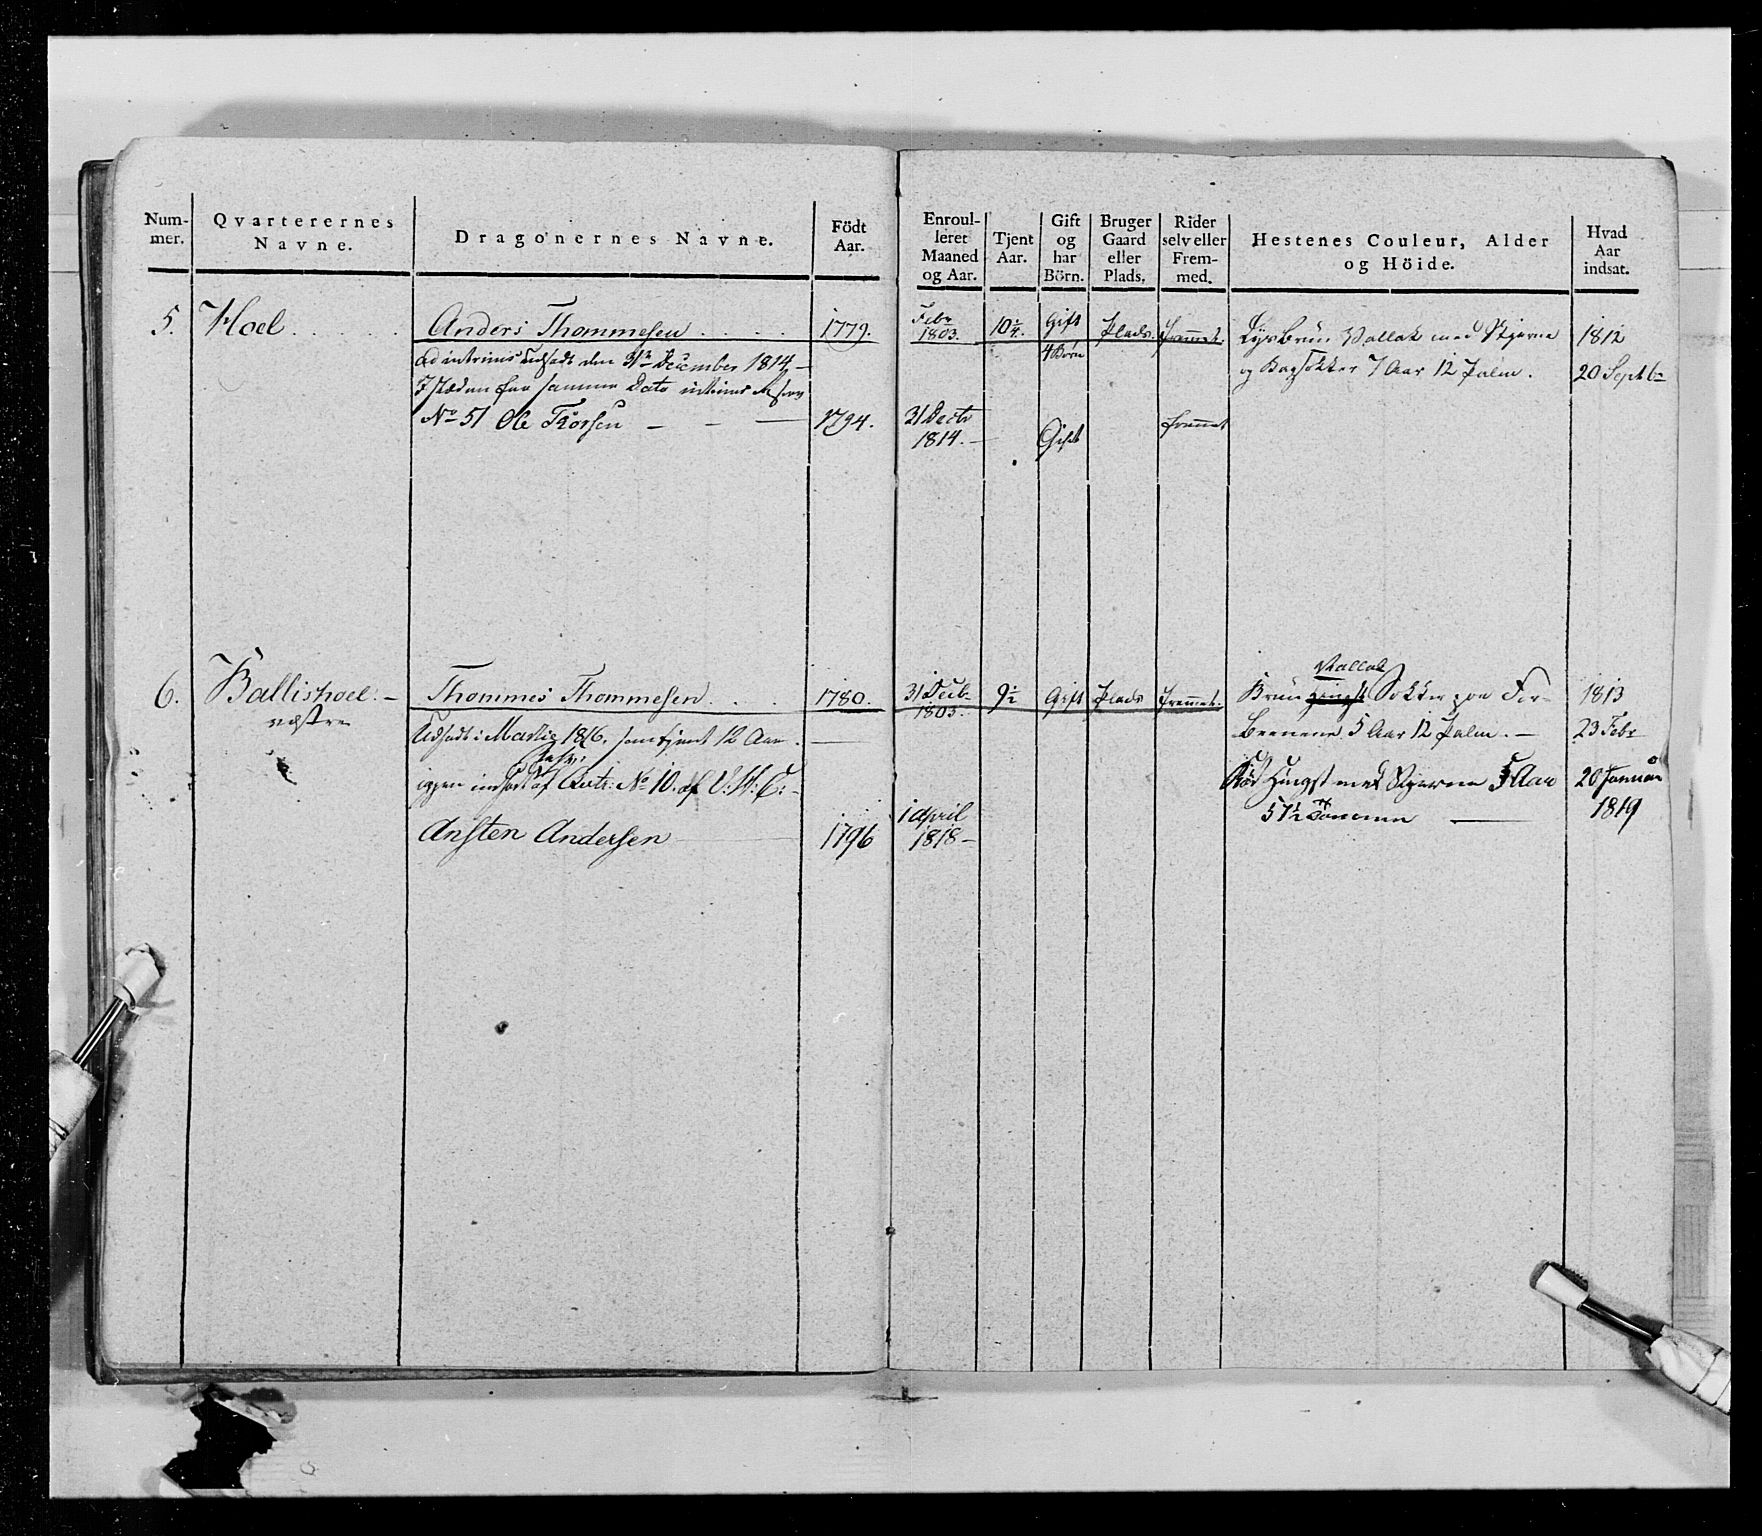 Num-
mer.
Qvarterernes
Navne.
Dragonernes Navne.
Födt
Aar.
Enroul-
leret
Maaned
og Aar.
Tjent
Aar.
Gift
og
har
Börn.
Bruger
Gaard
eller
Plads.
Rider
selv eller
Frem-
med.
Hestenes Couleur, Alder
og Höide.
Hvad
Aar
indsat.
5. Hoel Anders Thommesen 1779. Febr 1803. 10¼. Gift 4 Börn Plads. fremet. Lysbrun Vallak med Stjerne 1812
og Bagsokker 7 Aar 12 Palm. 20 Septbr
ad intrims udsadt den 31te December 1814 –
I stæden for samme Dato intrims
No 51 Ole Torsen – – – 1794. 31 Decbr 1814. – Gift fremet
6. Ballishoel. – Thommes Thommesen 1780. 31 Decb 1803. 9½ Gift Plads fremet. Brun Hingst Vallak Sokker paa For- 1813
vestre
Udsadt i Martii 1816, som tjent 12 Aar. Beenene 5 Aar 12 Palm. – 23 Febr
igjen indsadt af No 10. af Rød Hingst med Stjerne 5 Aar 20 Januar
57½ Tommer 1819
Ansten Andersen 1796 1 April 1818 –